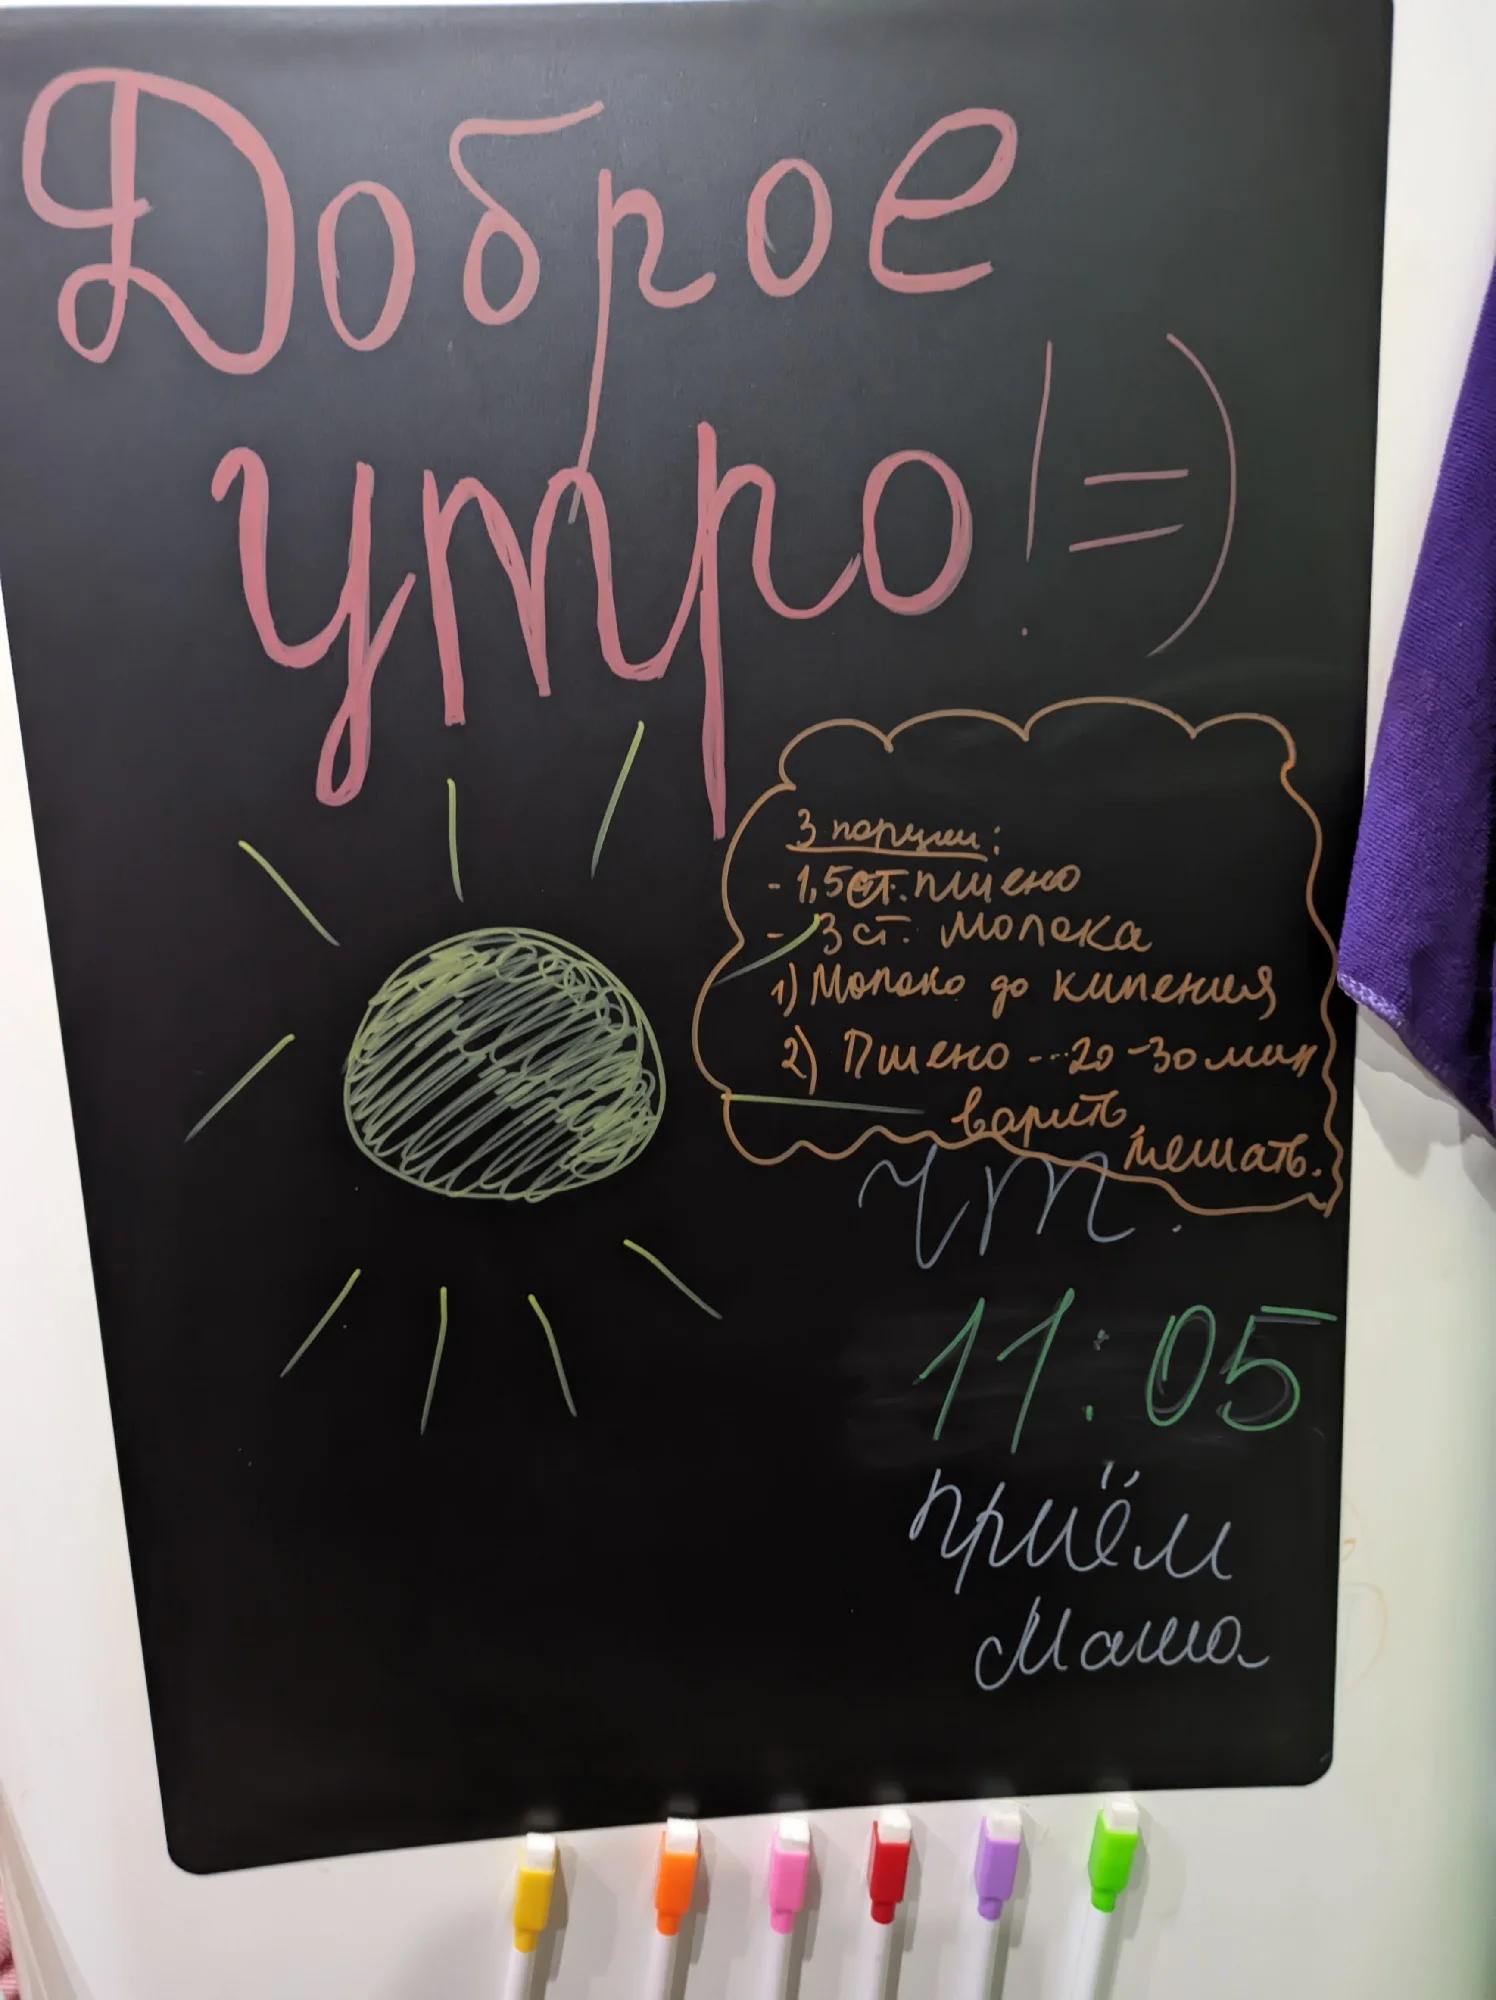 Доброе
утро! =)
3 порции:
- 1,5 ст. пшено
- 3 ст. молока
1) Молоко до кипения
2) Пшено --- 20-30 мин
варить,
мешать.
чт.
11:05
приём
Маша